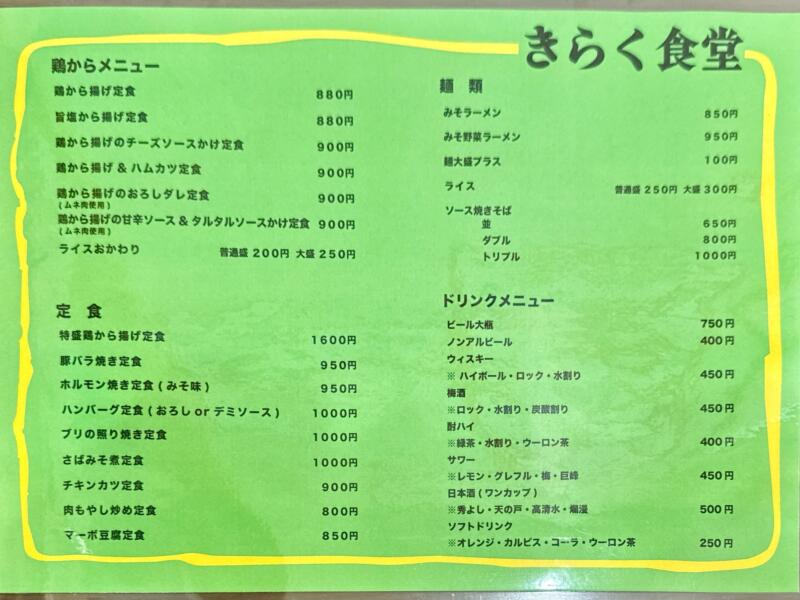 きらく食堂
鶏からメニュー
鶏から揚げ定食 880円
旨塩から揚げ定食 880円
鶏から揚げのチーズソースかけ定食 900円
鶏から揚げ & ハムカツ定食 900円
鶏から揚げのおろしダレ定食 900円
(ムネ肉使用)
鶏から揚げの甘辛ソース & タルタルソースかけ定食 900円
(ムネ肉使用)
ライスおかわり 普通盛 200円 大盛 250円
定 食
特盛鶏から揚げ定食 1600円
豚バラ焼き定食 950円
ホルモン焼き定食 (みそ味) 950円
ハンバーグ定食 (おろし or デミソース) 1000円
ブリの照り焼き定食 1000円
さばみそ煮定食 1000円
チキンカツ定食 900円
肉もやし炒め定食 800円
マーボ豆腐定食 850円
麺 類
みそラーメン 850円
みそ野菜ラーメン 950円
麺大盛プラス 100円
ライス 普通盛 250円 大盛 300円
ソース焼きそば
並 650円
ダブル 800円
トリプル 1000円
ドリンクメニュー
ビール大瓶 750円
ノンアルビール 400円
ウィスキー
※ ハイボール・ロック・水割り 450円
梅酒
※ロック・水割り・炭酸割り 450円
酎ハイ
※緑茶・水割り・ウーロン茶 400円
サワー
※レモン・グレフル・梅・巨峰 450円
日本酒 (ワンカップ)
※秀よし・天の戸・高清水・爛漫 500円
ソフトドリンク
※オレンジ・カルピス・コーラ・ウーロン茶 250円